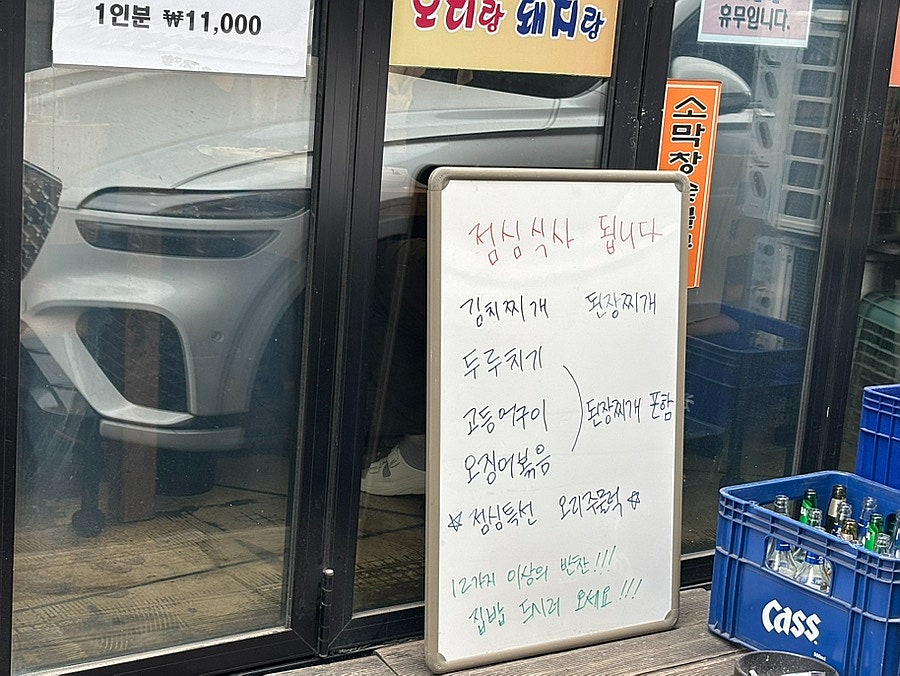 1인분 ₩11,000
오리랑 돼지랑
휴무입니다.
소막창
점심식사 됩니다
김치찌개 된장찌개
두루치기
고등어구이 된장찌개 포함
오징어볶음
☆ 점심특선 오리주물럭 ☆
12가지 이상의 반찬!!!
집밥 드시러 오세요!!!
Cass